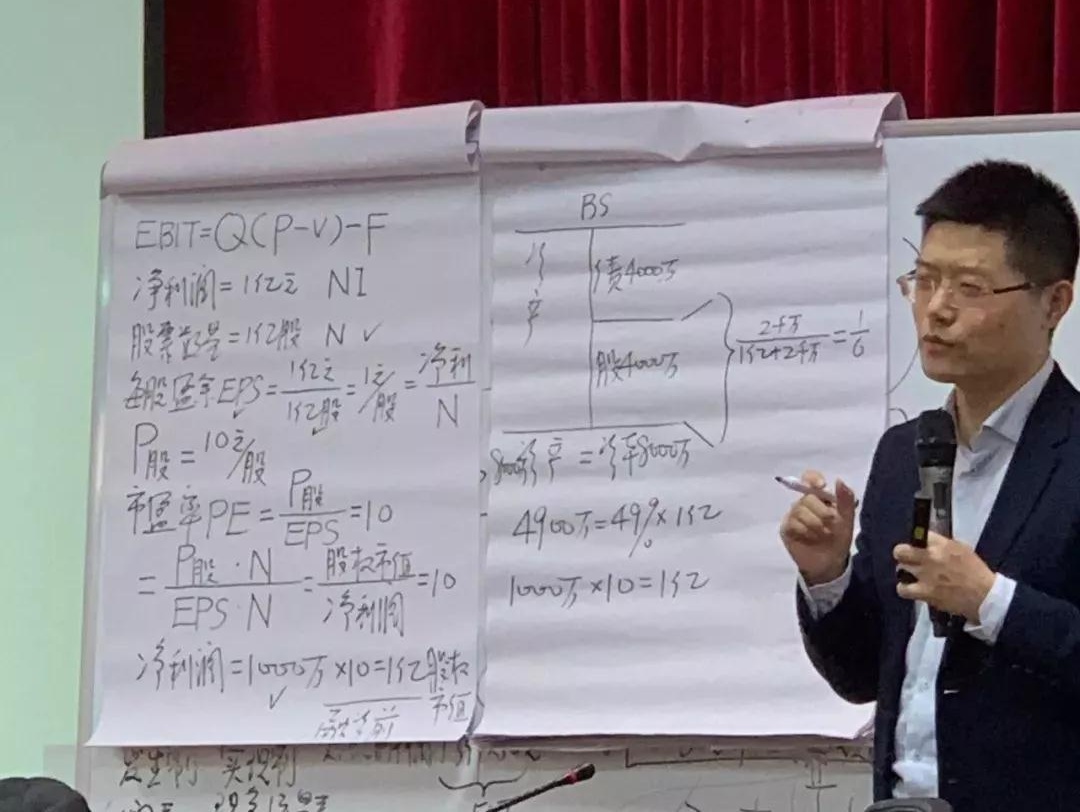 EBIT=Q(P-V)-F
净利润=1亿元 NI
股票总量=1亿股 N ✓
每股盈余EPS=1亿元/1亿股=1元/股=净利/N
P股=10元/股
市盈率PE=P股/EPS=10
=P股·N/EPS·N=股权市值/净利润=10
净利润=1000万×10=1亿股权市值
融资前
BS
资产
债4000万
股4000万
2千万/1亿+2千万=1/6
8000资产=资本8000万
4900万=49%×1亿
1000万×10=1亿